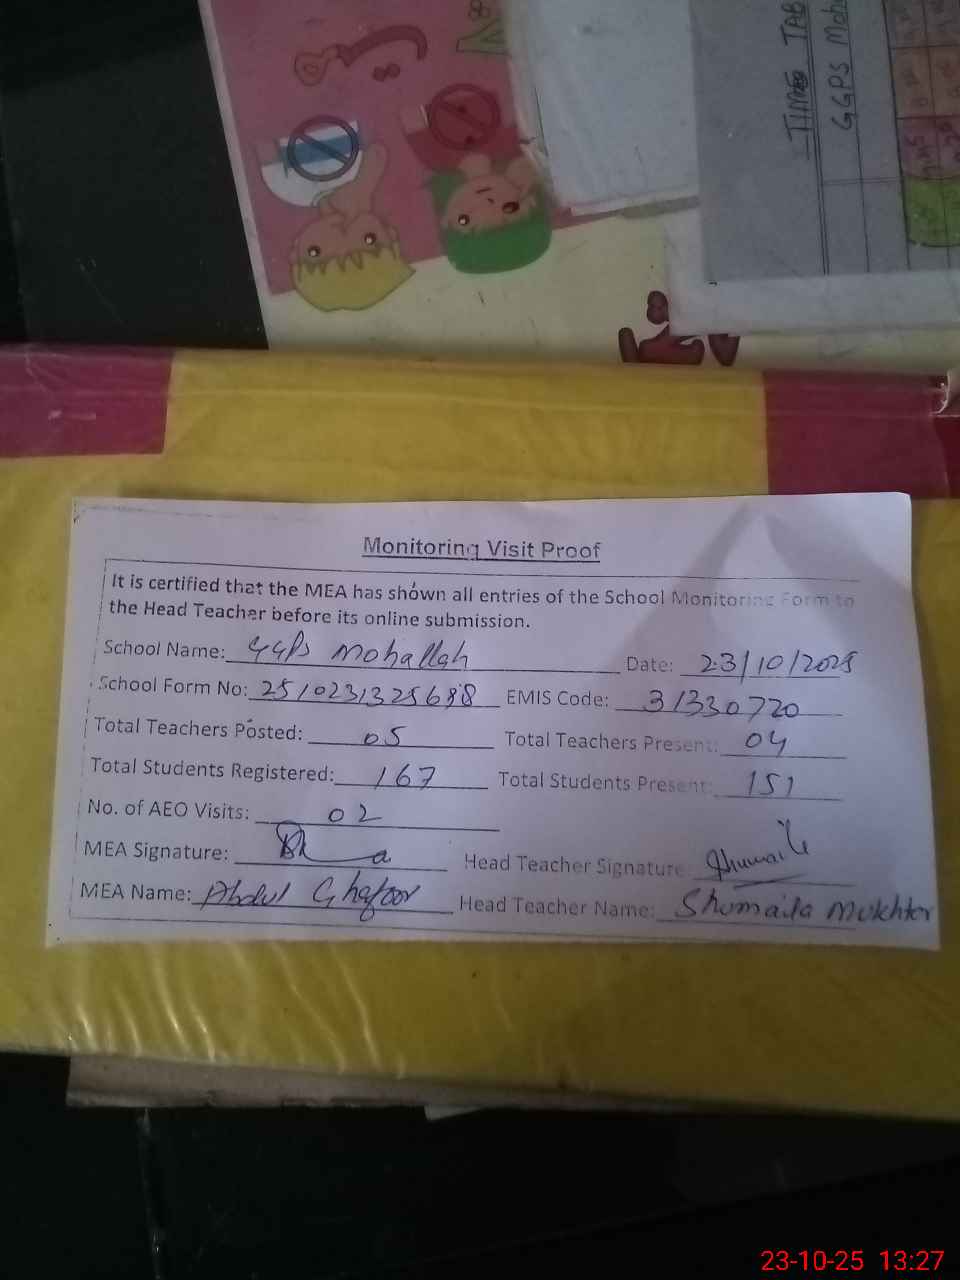 TIME TAB
GGPS Moha
Monitoring Visit Proof
It is certified that the MEA has shown all entries of the School Monitoring Form to
the Head Teacher before its online submission.
School Name: GGPS Mohallah Date: 23/10/2025
School Form No: EMIS Code: 31330720
Total Teachers Posted: 05 Total Teachers Present: 04
Total Students Registered: 167 Total Students Present: 151
No. of AEO Visits: 02
MEA Signature: Head Teacher Signature: Shumaila
MEA Name: Abdul Ghafoor Head Teacher Name: Shumaila Mukhtar
23-10-25 13:27